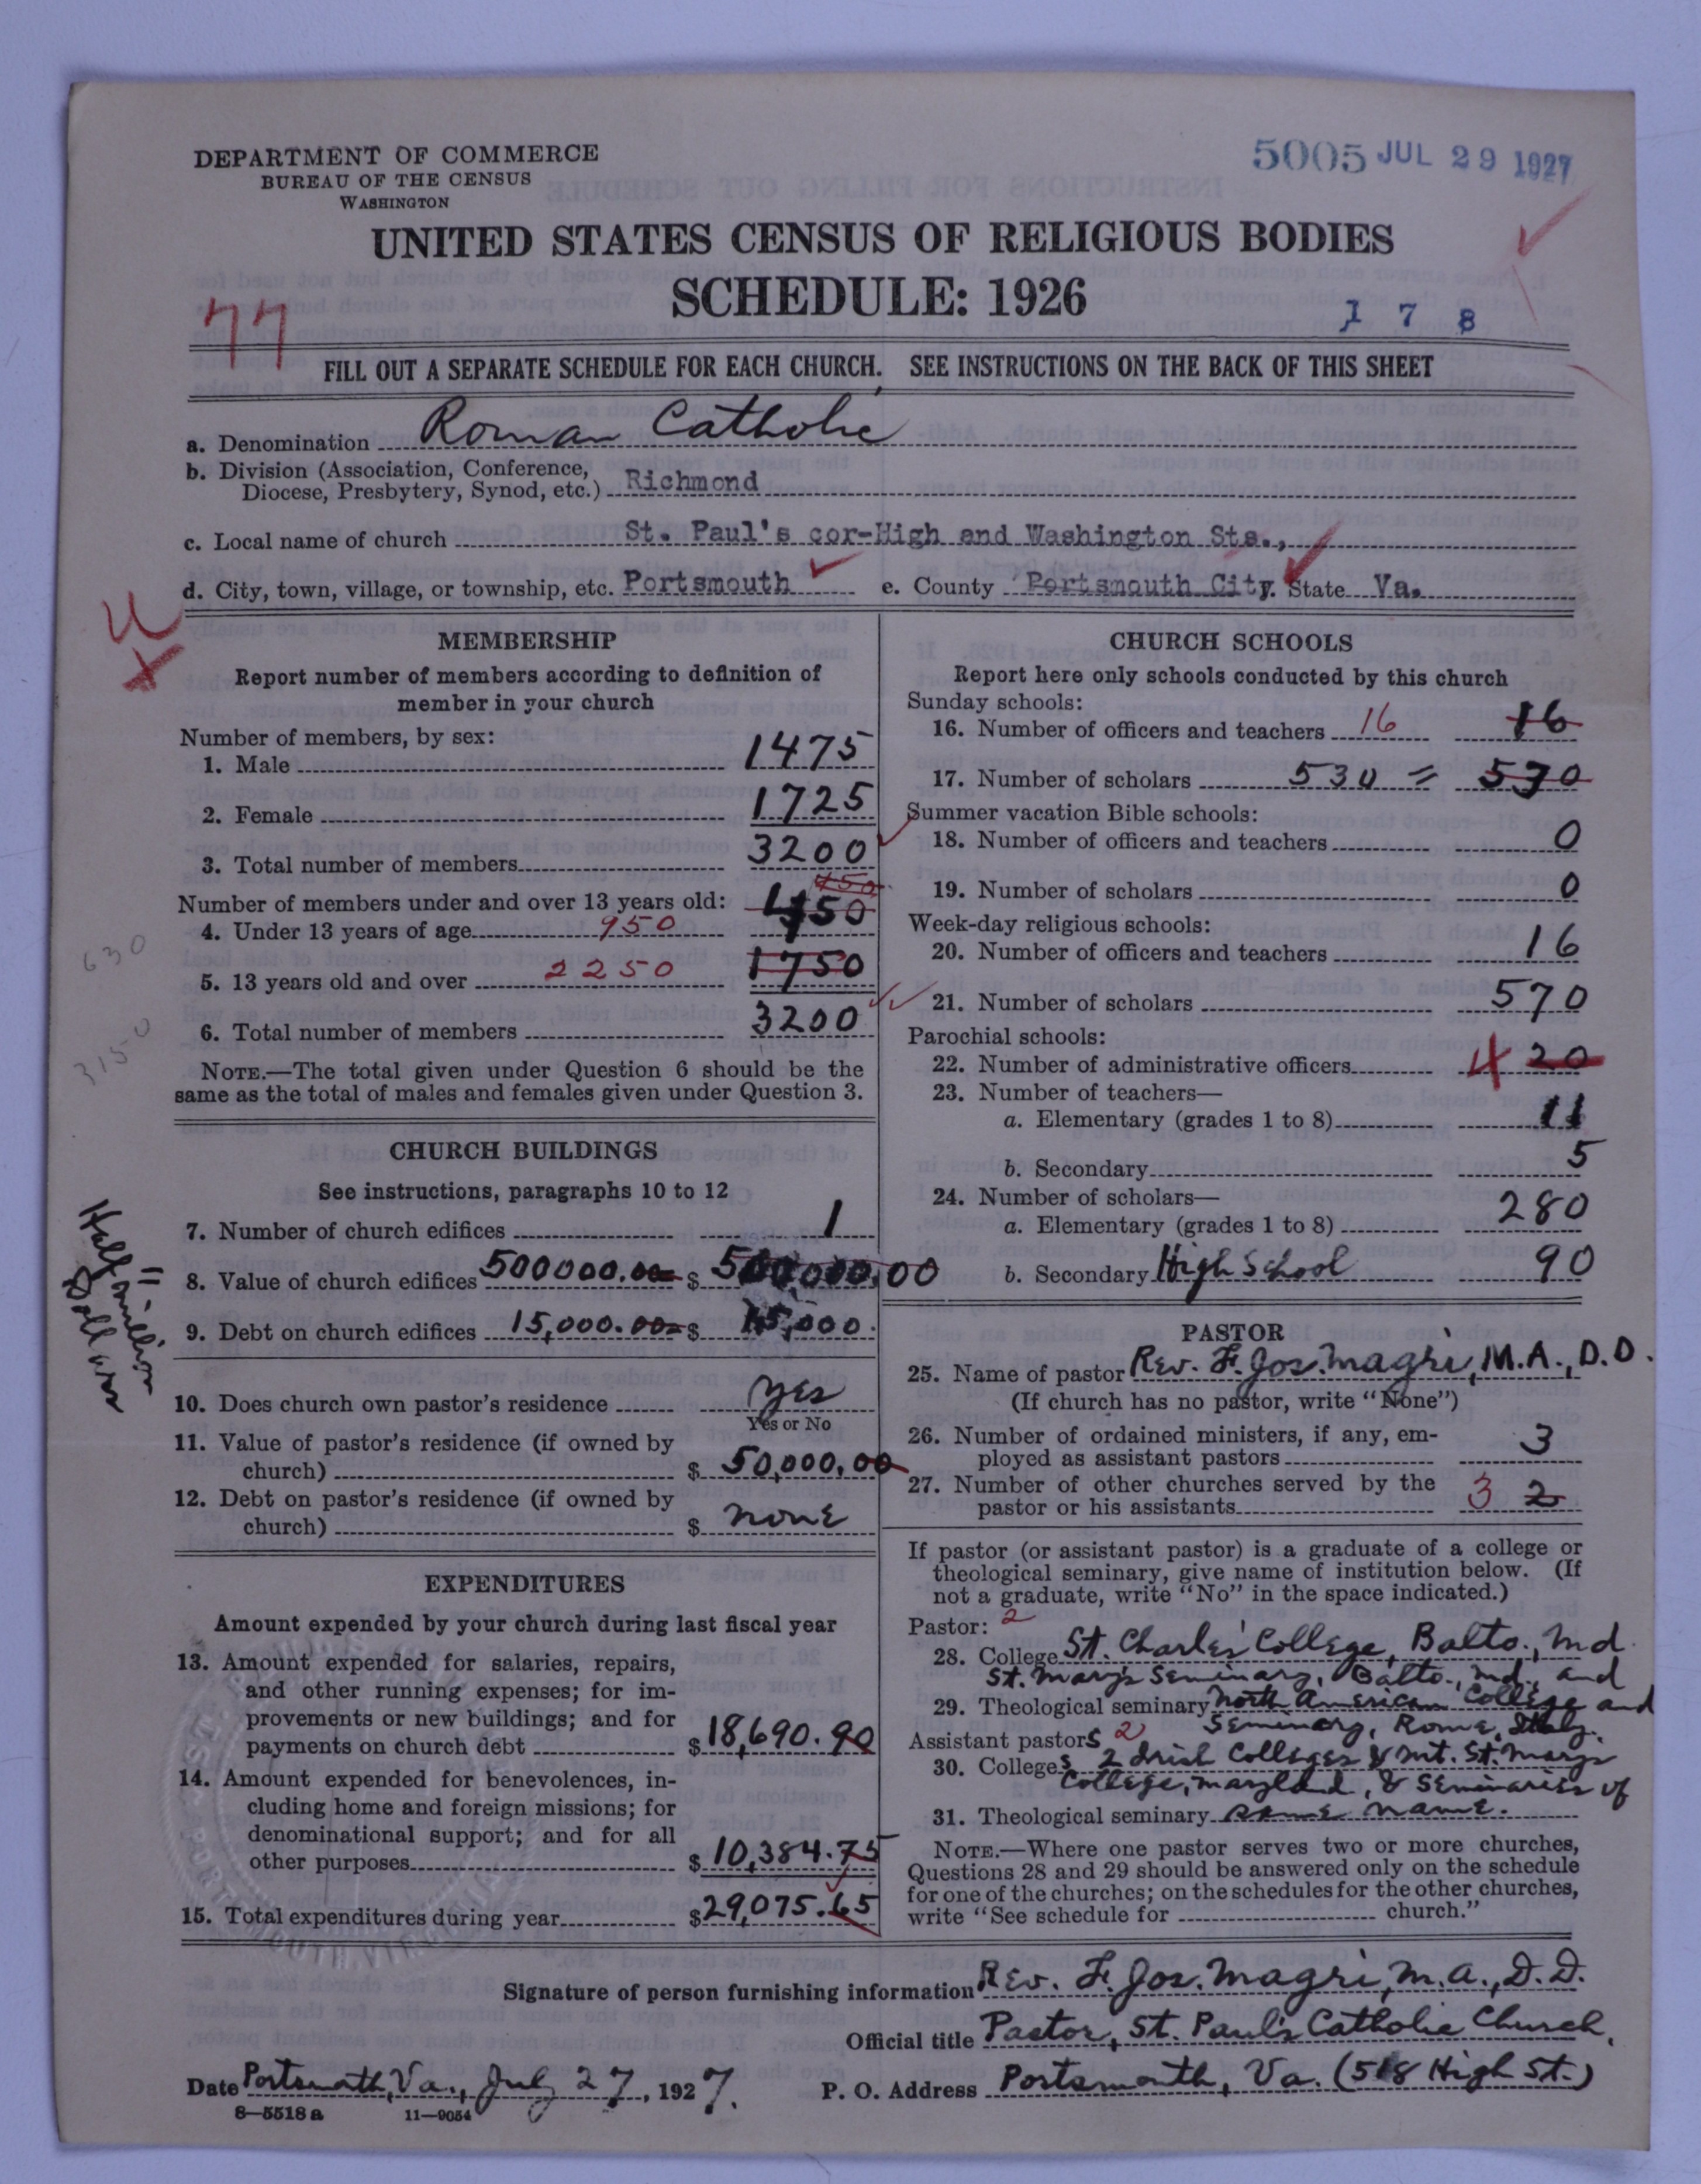 DEPARTMENT OF COMMERCE
BUREAU OF THE CENSUS
WASHINGTON
5005 JUL 29 1927
UNITED STATES CENSUS OF RELIGIOUS BODIES
SCHEDULE: 1926
77
1 7 8
FILL OUT A SEPARATE SCHEDULE FOR EACH CHURCH. SEE INSTRUCTIONS ON THE BACK OF THIS SHEET
a. Denomination Roman Catholic
b. Division (Association, Conference,
Diocese, Presbytery, Synod, etc.) Richmond
c. Local name of church St. Paul's cor-High and Washington Sts.,
d. City, town, village, or township, etc. Portsmouth e. County Portsmouth City. State Va.
MEMBERSHIP
Report number of members according to definition of
member in your church
Number of members, by sex:
1. Male 1475
2. Female 1725
3. Total number of members 3200
Number of members under and over 13 years old:
4. Under 13 years of age 950 450 1450
5. 13 years old and over 2250 1750
6. Total number of members 3200
630
3150
NOTE.—The total given under Question 6 should be the
same as the total of males and females given under Question 3.
CHURCH BUILDINGS
See instructions, paragraphs 10 to 12
7. Number of church edifices 1
8. Value of church edifices 500000.00 $ 500,000.00
Half million Dollars
9. Debt on church edifices 15,000.00 $ 15,000.
10. Does church own pastor's residence Yes
Yes or No
11. Value of pastor's residence (if owned by
church) $ 50,000.00
12. Debt on pastor's residence (if owned by
church) $ none
EXPENDITURES
Amount expended by your church during last fiscal year
13. Amount expended for salaries, repairs,
and other running expenses; for im-
provements or new buildings; and for
payments on church debt $ 18,690.90
14. Amount expended for benevolences, in-
cluding home and foreign missions; for
denominational support; and for all
other purposes $ 10,384.75
15. Total expenditures during year $ 29,075.65
CHURCH SCHOOLS
Report here only schools conducted by this church
Sunday schools:
16. Number of officers and teachers 16 16
17. Number of scholars 530 = 530
Summer vacation Bible schools:
18. Number of officers and teachers 0
19. Number of scholars 0
Week-day religious schools:
20. Number of officers and teachers 16
21. Number of scholars 570
Parochial schools:
22. Number of administrative officers 4 20
23. Number of teachers—
a. Elementary (grades 1 to 8) 11
b. Secondary 5
24. Number of scholars—
a. Elementary (grades 1 to 8) 280
b. Secondary High School 90
PASTOR
25. Name of pastor Rev. F. Jos. Magri, M.A., D.D.
(If church has no pastor, write "None")
26. Number of ordained ministers, if any, em-
ployed as assistant pastors 3
27. Number of other churches served by the
pastor or his assistants 3 2
If pastor (or assistant pastor) is a graduate of a college or
theological seminary, give name of institution below. (If
not a graduate, write "No" in the space indicated.)
Pastor: 2
28. College St. Charles' College, Balto., Md.
St. Mary's Seminary, Balto., Md., and
29. Theological seminary North American College and
Seminary, Rome, Italy.
Assistant pastors 2
30. Colleges 2 Irish Colleges & Mt. St. Marys
College, Maryland, & Seminaries of
31. Theological seminary same name.
NOTE.—Where one pastor serves two or more churches,
Questions 28 and 29 should be answered only on the schedule
for one of the churches; on the schedules for the other churches,
write "See schedule for church."
Signature of person furnishing information Rev. F. Jos. Magri, M.A., D.D.
Official title Pastor, St. Paul's Catholic Church,
Date Portsmouth, Va., July 27, 1927. P. O. Address Portsmouth, Va. (518 High St.)
8—5518 a 11—9054